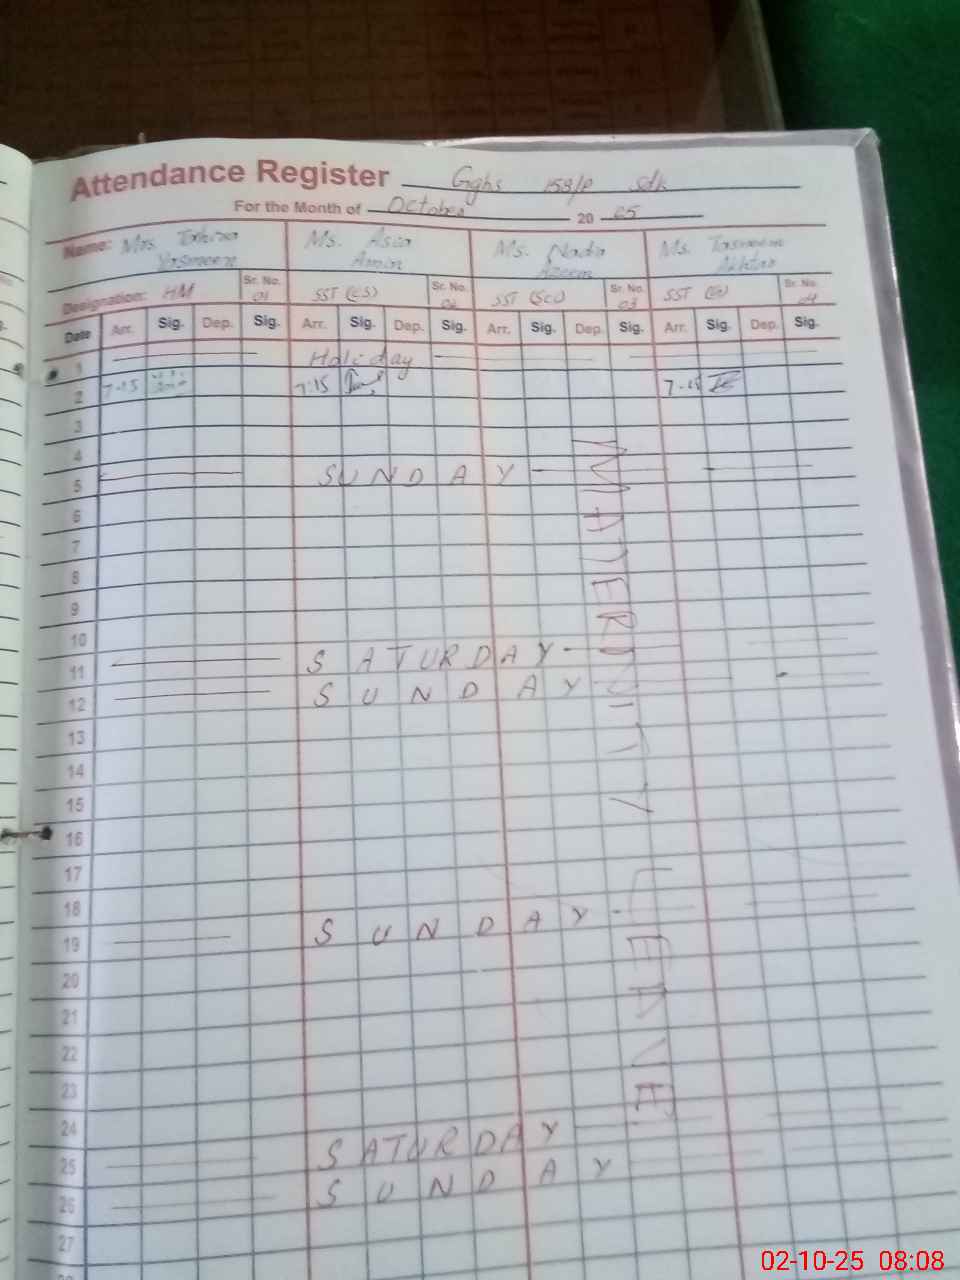 Attendance Register Gghs 158/P Sdk
For the Month of October 20 25
Name: Mrs. Tahira Yasmeen Ms. Asia Amin Ms. Nadia Azeem Ms. Tasneem Akhtar
Designation: HM Sr. No. 01 SST (CS) Sr. No. 02 SST (Sci) Sr. No. 03 SST Sr. No. 04
Date Arr. Sig. Dep. Sig. Arr. Sig. Dep. Sig. Arr. Sig. Dep. Sig. Arr. Sig. Dep. Sig.
1 Holiday
2 7-15 7:15 7-15
3
4
5 SUNDAY
6
7
8
9
10
11 SATURDAY
12 SUNDAY
13
14
15
16
17
18
19 SUNDAY
20
21
22
23
24
25 SATURDAY
26 SUNDAY
27
MATERNITY LEAVE
02-10-25 08:08